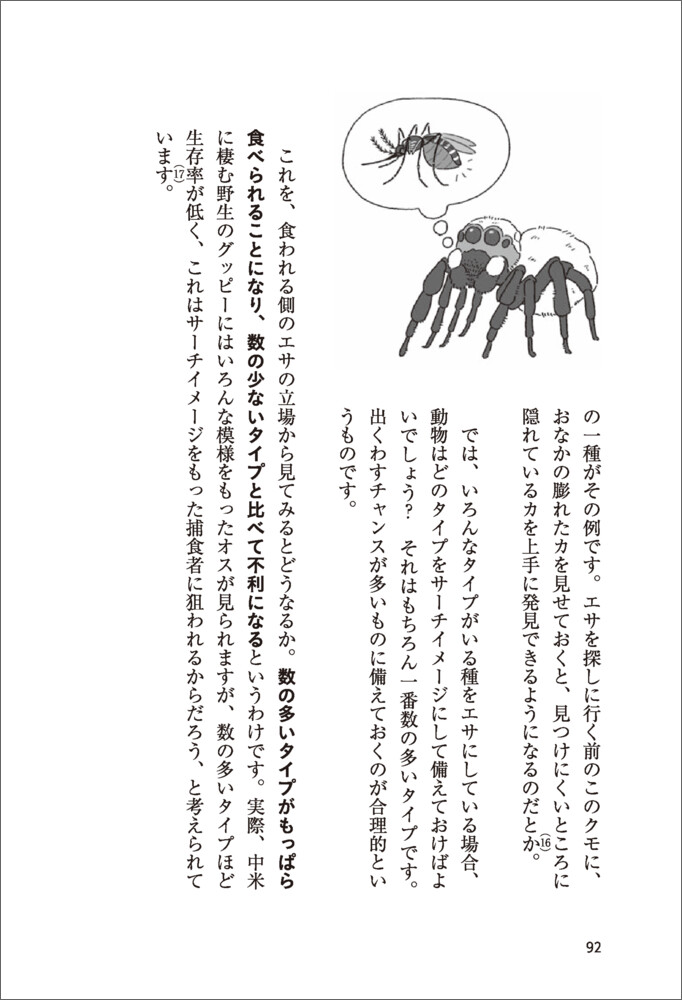 の一種がその例です。エサを探しに行く前のこのクモに、
おなかの膨れたカを見せておくと、見つけにくいところに
隠れているカを上手に発見できるようになるのだとか⒃。
では、いろんなタイプがいる種をエサにしている場合、
動物はどのタイプをサーチイメージにして備えておけばよ
いでしょう？　それはもちろん一番数の多いタイプです。
出くわすチャンスが多いものに備えておくのが合理的とい
うものです。
これを、食われる側のエサの立場から見てみるとどうなるか。数の多いタイプがもっぱら
食べられることになり、数の少ないタイプと比べて不利になるというわけです。実際、中米
に棲む野生のグッピーにはいろんな模様をもったオスが見られますが、数の多いタイプほど
生存率が低く⒄、これはサーチイメージをもった捕食者に狙われるからだろう、と考えられて
います。
92